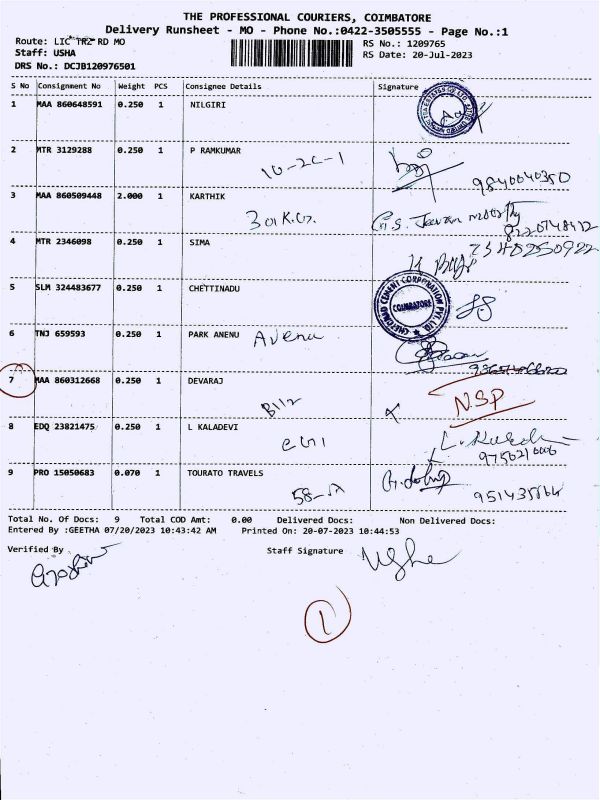 THE PROFESSIONAL COURIERS, COIMBATORE
Delivery Runsheet - MO - Phone No.:0422-3505555 - Page No.:1
Route: LIC TRZ RD MO
RS No.: 1209765
Staff: USHA
RS Date: 20-Jul-2023
DRS No.: DCJB120976501
S No Consignment No Weight PCS Consignee Details Signature
1 MAA 860648591 0.250 1 NILGIRI
2 MTR 3129288 0.250 1 P RAMKUMAR
10-2C-1
9840040350
3 MAA 860509448 2.000 1 KARTHIK
G.S. Jeevan moorthy
4 MTR 2346098 0.250 1 SIMA
5 SLM 324483677 0.250 1 CHETTINADU
CHETTINAD CEMENT CORPORATION PVT. LTD
COIMBATORE
6 TNJ 659593 0.250 1 PARK ANENU Avenu
7 MAA 860312668 0.250 1 DEVARAJ
B112 NSP
8 EDQ 23821475 0.250 1 L KALADEVI
9 PRO 15050683 0.070 1 TOURATO TRAVELS
Total No. Of Docs: 9 Total COD Amt: 0.00 Delivered Docs: Non Delivered Docs:
Entered By :GEETHA 07/20/2023 10:43:42 AM Printed On: 20-07-2023 10:44:53
Verified By Staff Signature
Usha
1